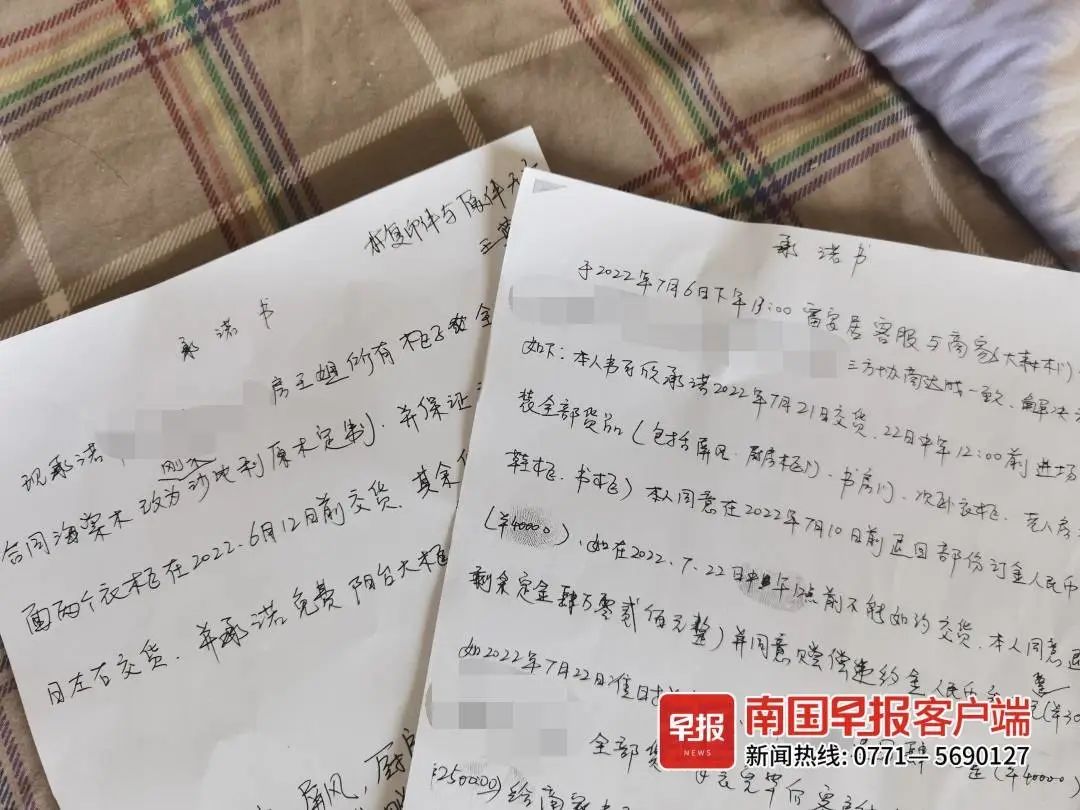 本复印件与原件
承诺书
现承诺
房王姐所有柜子
合同海棠木改为沙比利原木定制,并保证
面两个衣柜在2022.6月12日前交货.其余
日左右交货.并承诺免费阳台大柜
屏风,厨
承诺书
于2022年7月6日下午13:00富安居客服与商家(大森林)
三方协商达成一致、解决
如下:本人书面承诺2022年7月21日交货.22日中午12:00前进场
装全部货品(包括屏风.厨房柜门.书房门.次卧衣柜.老人房
鞋柜.书柜)本人同意在2022年7月10日前退回部份订金人民币
(¥40000).如在2022.7.22日中午12点前不能如约交货.本人同意退
剩余定金肆万零贰佰元整)并同意赔偿违约金人民币
如2022年7月22日准时
(¥40000)
全部货
早报
NEWS
南国早报客户端
新闻热线:0771—5690127